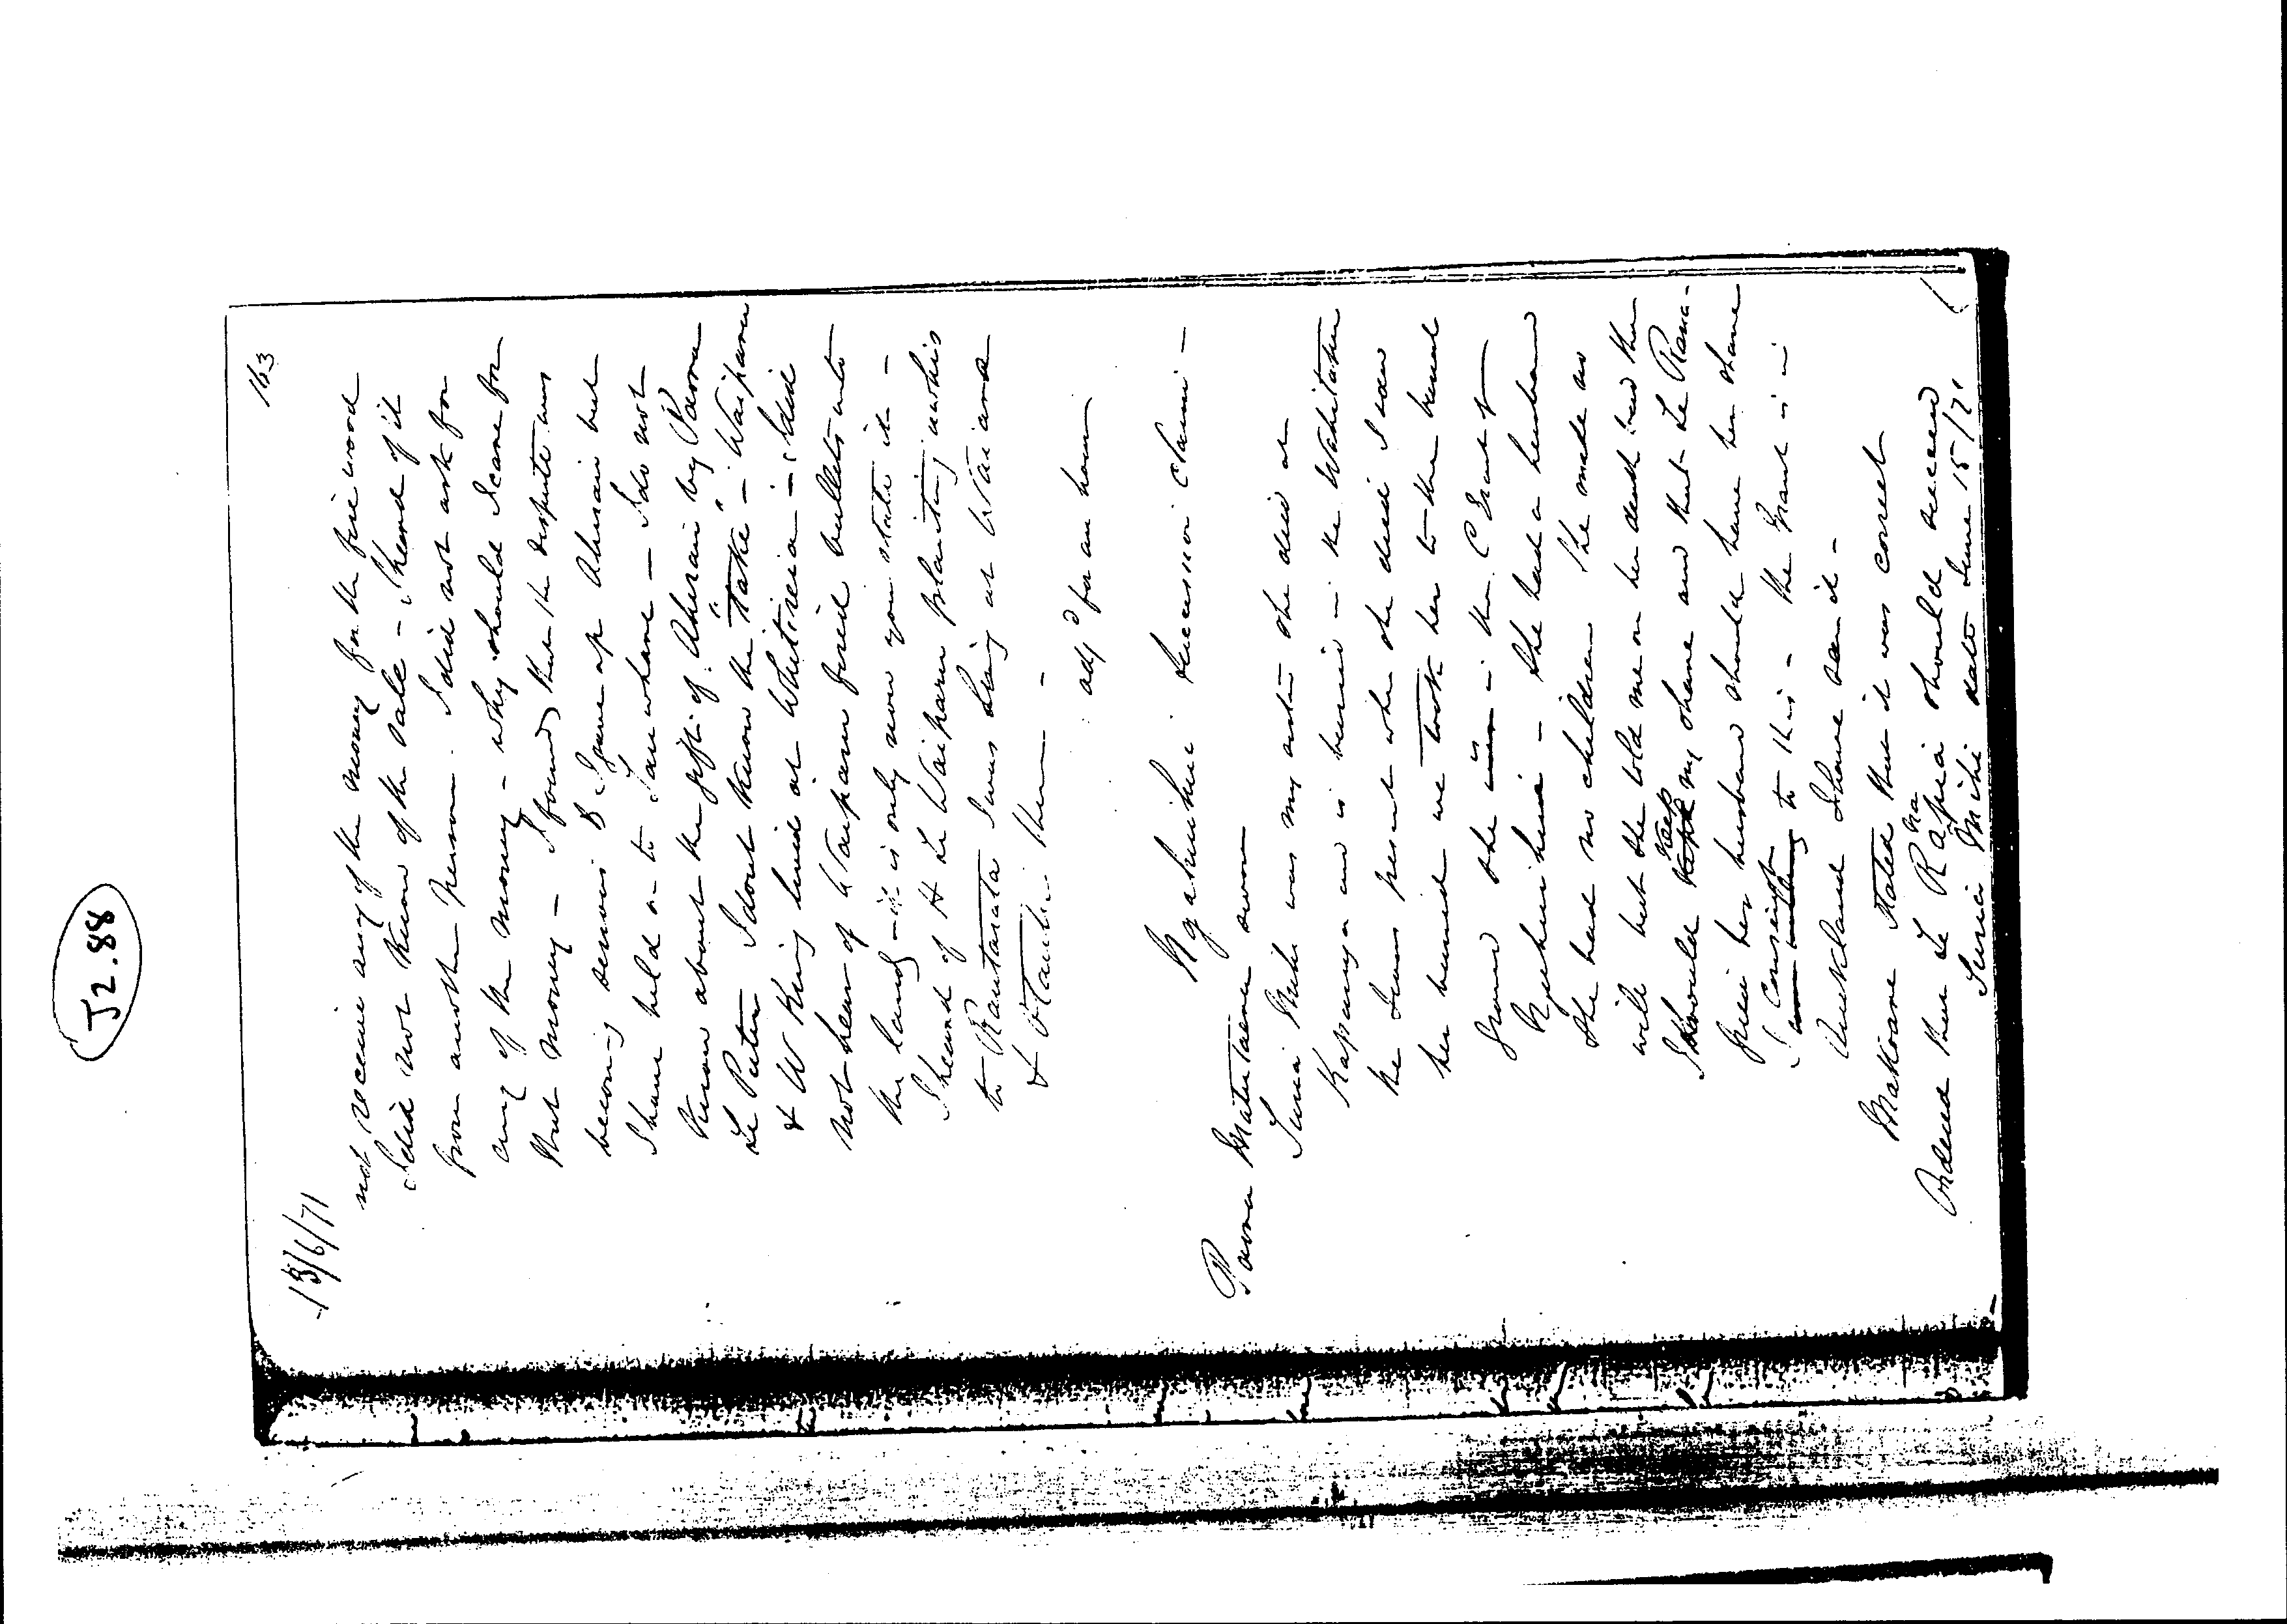 J2.88
15/6/71
163
not receive any of the money for the fire wood
I did not know of the sale - I heard of it
from another person. I did not ask for
any of the money - why should I come for
that money - I found that the dispute was
becoming serious & I gave up Ahirau but
I have held on to Tauwhare - I do not
know about the gift of Ahirau by Paora
Te Putu I dont know the "take" - Waiparu
& W King lived at Whitireia - I did
not hear of Waiparu fired bullets into
the land - it is only now you state it -
I heard of H Te Waiparu planting
to I was living at
& then -
adjd for an hour
Ngahuihui. Succession Claim -
Paora Matutaera sworn
Miti was my sister she died at
Kapunga and is buried in the Wahitapu
the I was present when she died I saw
her buried we took her to the burial
ground she is in the C Grant of
Ngahuihui - she had a husband
She had no children She made no
will but she told me on her death bed that
I should keep my share and that Te Rama-
her husband should have her share
I consent to this - the Grant is in
Auckland I have seen it -
Makoare stated that it was correct
Ordered that Te should succeed
Miti date June 15/71